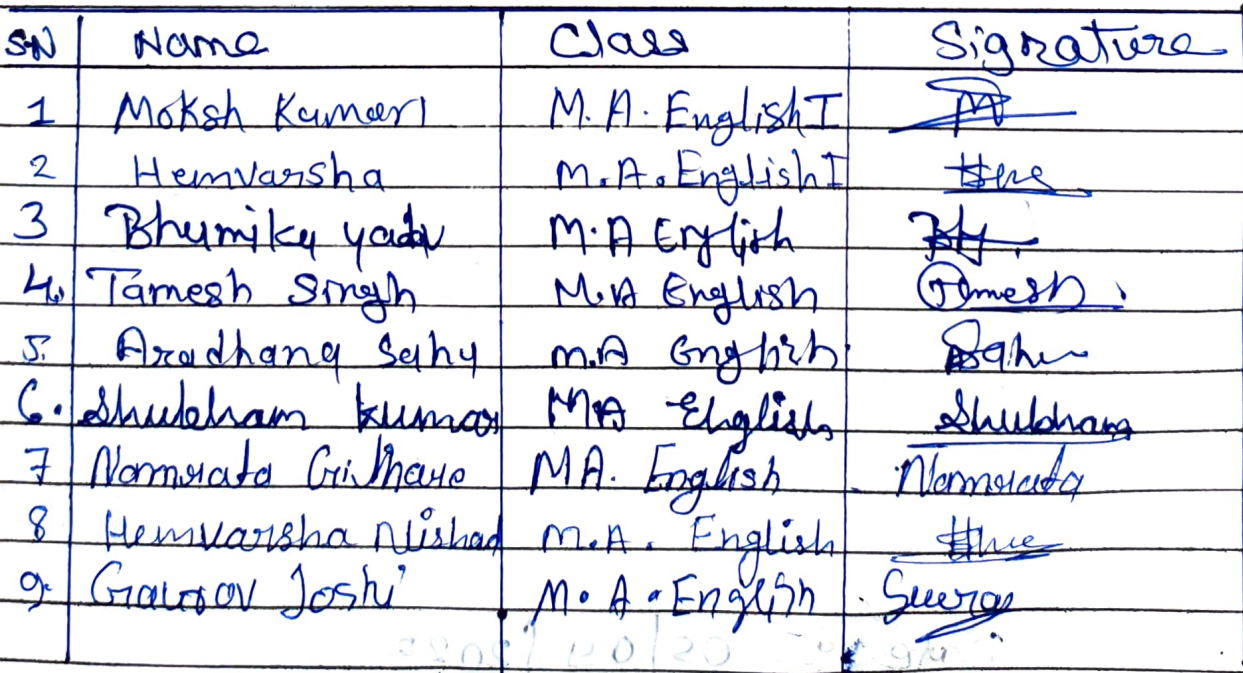 SN Name Class Signature
1 Moksh Kumari M. A. English I M
2 Hemvarsha M.A. English I
3 Bhumika yadav M.A English
4. Tamesh Singh M.A English Tamesh
5. Aradhana Sahu M.A English Sahu
6. Shubham kumar MA English Shubham
7 Namrata Gilhare MA. English Namrata
8 Hemvarsha Nishad M.A. English
9. Gaurav Joshi M. A. English